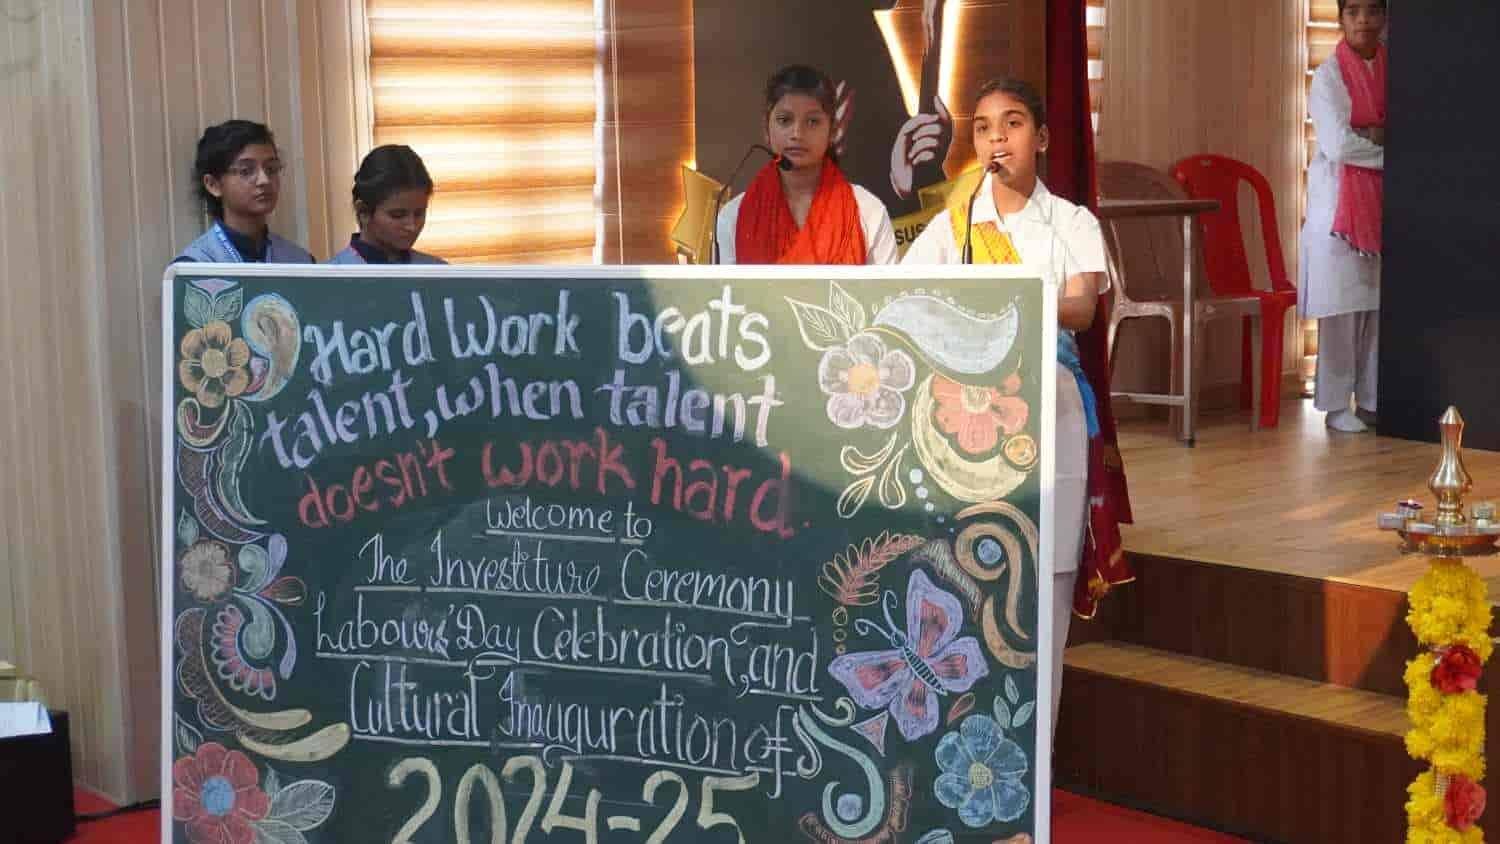 Hard Work beats
talent, when talent
doesn't work hard.
Welcome to
The Investiture Ceremony
Labours' Day Celebration, and
Cultural Inauguration of
2024-25
SUS